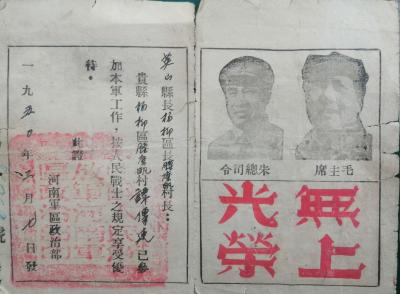 毛主席
朱總司令
無上
光榮
英山縣長楊柳區長村長：
貴縣楊柳區村傳已參
加本軍工作，按人民戰士之規定享受優
待。
此證
河南軍區政治部
一九五0年月日發
號